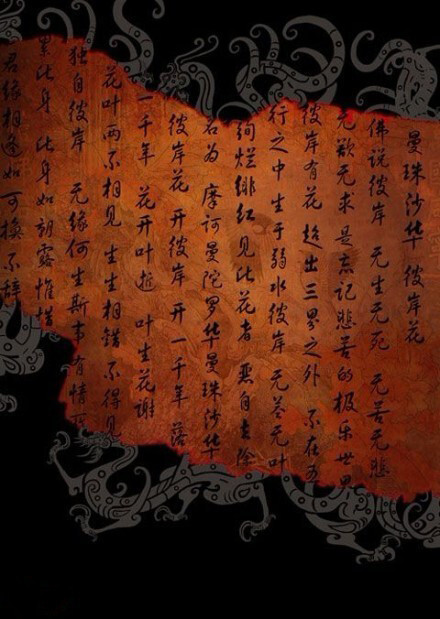 曼珠沙华 彼岸花
佛说彼岸 无生无死 无苦无悲
无欲无求 是忘记悲苦的极乐世界
彼岸有花 超出三界之外 不在五
行之中 生于弱水彼岸 无茎无叶
绚烂绯红 见此花者 恶自去除
名为 摩诃曼陀罗华曼珠沙华
彼岸花 开彼岸 开一千年 落
一千年 花开叶逝 叶生花谢
花叶两不相见 生生相错 不得见
独自彼岸 无缘何生斯 有情
累此身 此身如朝露 惟惜
君缘相逢如可换 不辞